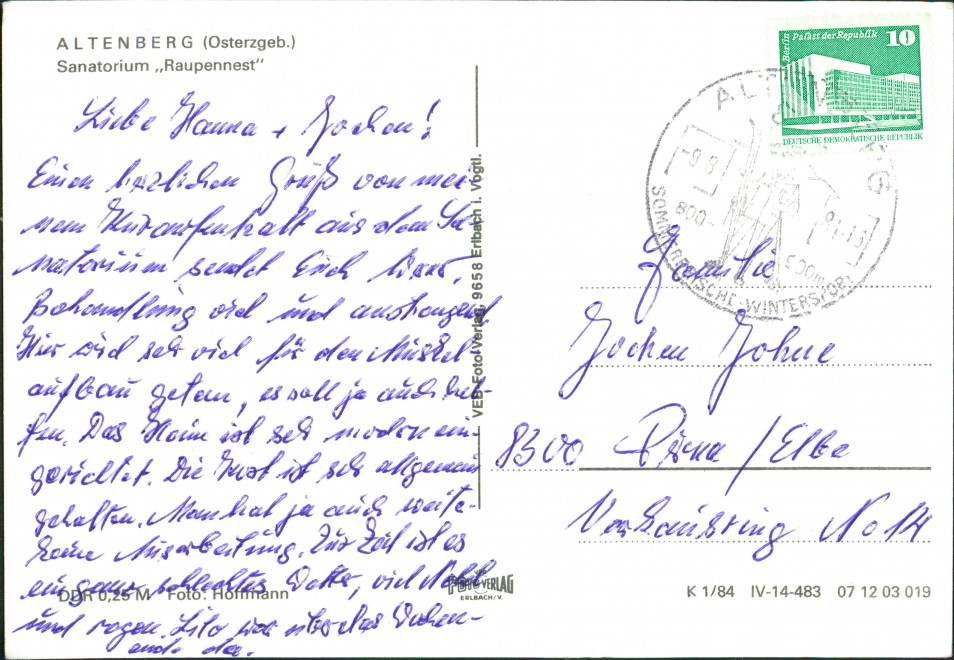 ALTENBERG (Osterzgeb.)
Sanatorium „Raupennest"
Liebe Hanna + Jochen!
Einen herzlichen Gruß von mei-
nem Kuraufenthalt aus dem Sa-
natorium sendet Euch
Behandlung viel und anstrengend
Hier wird sehr viel für den Muskel
aufbau getan, es soll ja auch hel-
fen. Das Heim ist sehr modern ein-
gerichtet. Die Kost ist sehr allgemein
gehalten. Man hat ja auch weiter
keine Ausarbeitung. Zur Zeit ist es
ein schlechtes Wetter, viel Nebel
und regen. war über das Wochen-
ende da.
DDR 0,25 M Foto: Hoffmann
VEB Foto-Verlag, 9658 Erlbach i. Vogtl.
FOTO-VERLAG
ERLBACH/V.
Berlin Palast der Republik 10
DEUTSCHE DEMOKRATISCHE REPUBLIK
ALTENBERG
-9.8
800-
900m
SOMMERFRISCHE-WINTERSPORT
Familie
Jochen Johne
8300 Pirna / Elbe
Varkausring No 14
K 1/84 IV-14-483 07 12 03 019